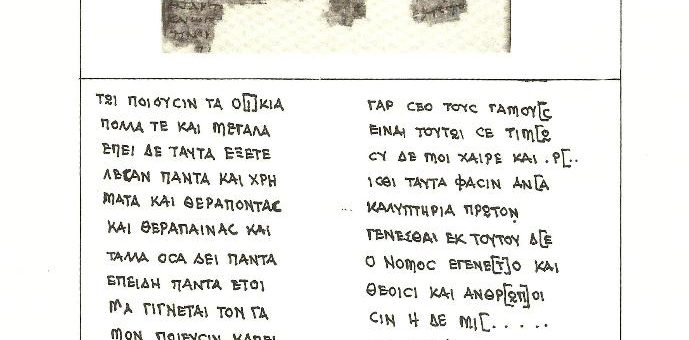 ΤΩΙ ΠΟΙΟΥϹΙΝ ΤΑ Ο[Ι]ΚΙΑ
ΠΟΛΛΑ ΤΕ ΚΑΙ ΜΕΓΑΛΑ
ΕΠΕΙ ΔΕ ΤΑΥΤΑ ΕΞΕΤΕ
ΛΕϹΑΝ ΠΑΝΤΑ ΚΑΙ ΧΡΗ
ΜΑΤΑ ΚΑΙ ΘΕΡΑΠΟΝΤΑϹ
ΚΑΙ ΘΕΡΑΠΑΙΝΑϹ ΚΑΙ
ΤΑΛΛΑ ΟϹΑ ΔΕΙ ΠΑΝΤΑ
ΕΠΕΙΔΗ ΠΑΝΤΑ ΕΤΟΙ
ΜΑ ΓΙΓΝΕΤΑΙ ΤΟΝ ΓΑ
ΜΟΝ ΠΟΙΕΥϹΙΝ ΚΑΠΕΙ
ΓΑΡ ϹΕΟ ΤΟΥϹ ΓΑΜΟΥ[Ϲ
ΕΙΝΑΙ ΤΟΥΤΩΙ ϹΕ ΤΙΜ[Ω
ϹΥ ΔΕ ΜΟΙ ΧΑΙΡΕ ΚΑΙ .Ρ[..
ΙϹΘΙ ΤΑΥΤΑ ΦΑϹΙΝ ΑΝ[Α
ΚΑΛΥΠΤΗΡΙΑ ΠΡΩΤΟΝ
ΓΕΝΕϹΘΑΙ ΕΚ ΤΟΥΤΟΥ Δ[Ε
Ο ΝΟΜΟϹ ΕΓΕΝΕ[Τ]Ο ΚΑΙ
ΘΕΟΙϹΙ ΚΑΙ ΑΝΘΡ[ΩΠ]ΟΙ
ϹΙΝ Η ΔΕ ΜΙ[.....